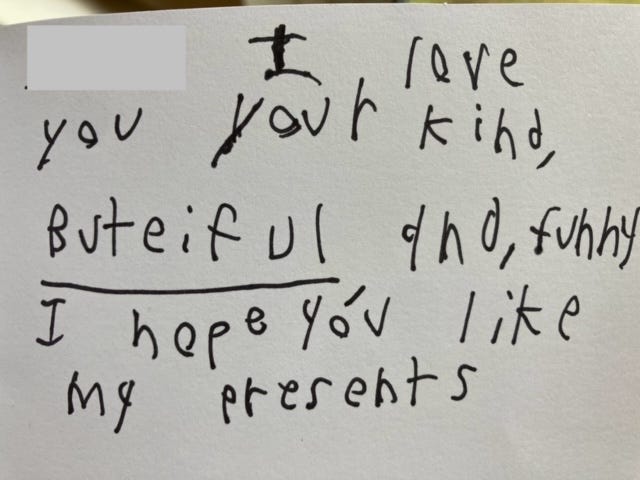 I love
you your kind,
Buteiful and, funny
I hope you like
my presents